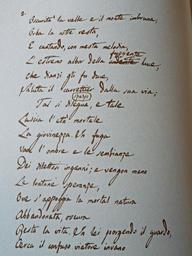 2.
Oscurità la valle e il monte imbruna;
Orba la notte resta,
E cantando, con mesta melodia,
fuggente
L'estremo albor della luce,
Che dianzi gli fu duce,
Saluta il carrettier dalla sua via;
Tal si dilegua, e tale
Lascia l'età mortale
La giovinezza. In fuga
Van l'ombre e le sembianze
Dei dilettosi inganni; e vengon meno
Le lontane speranze,
Ove s'appoggia la mortal natura.
Abbandonata, oscura
Resta la vita. In lei porgendo il guardo,
Cerca il confuso viatore invano